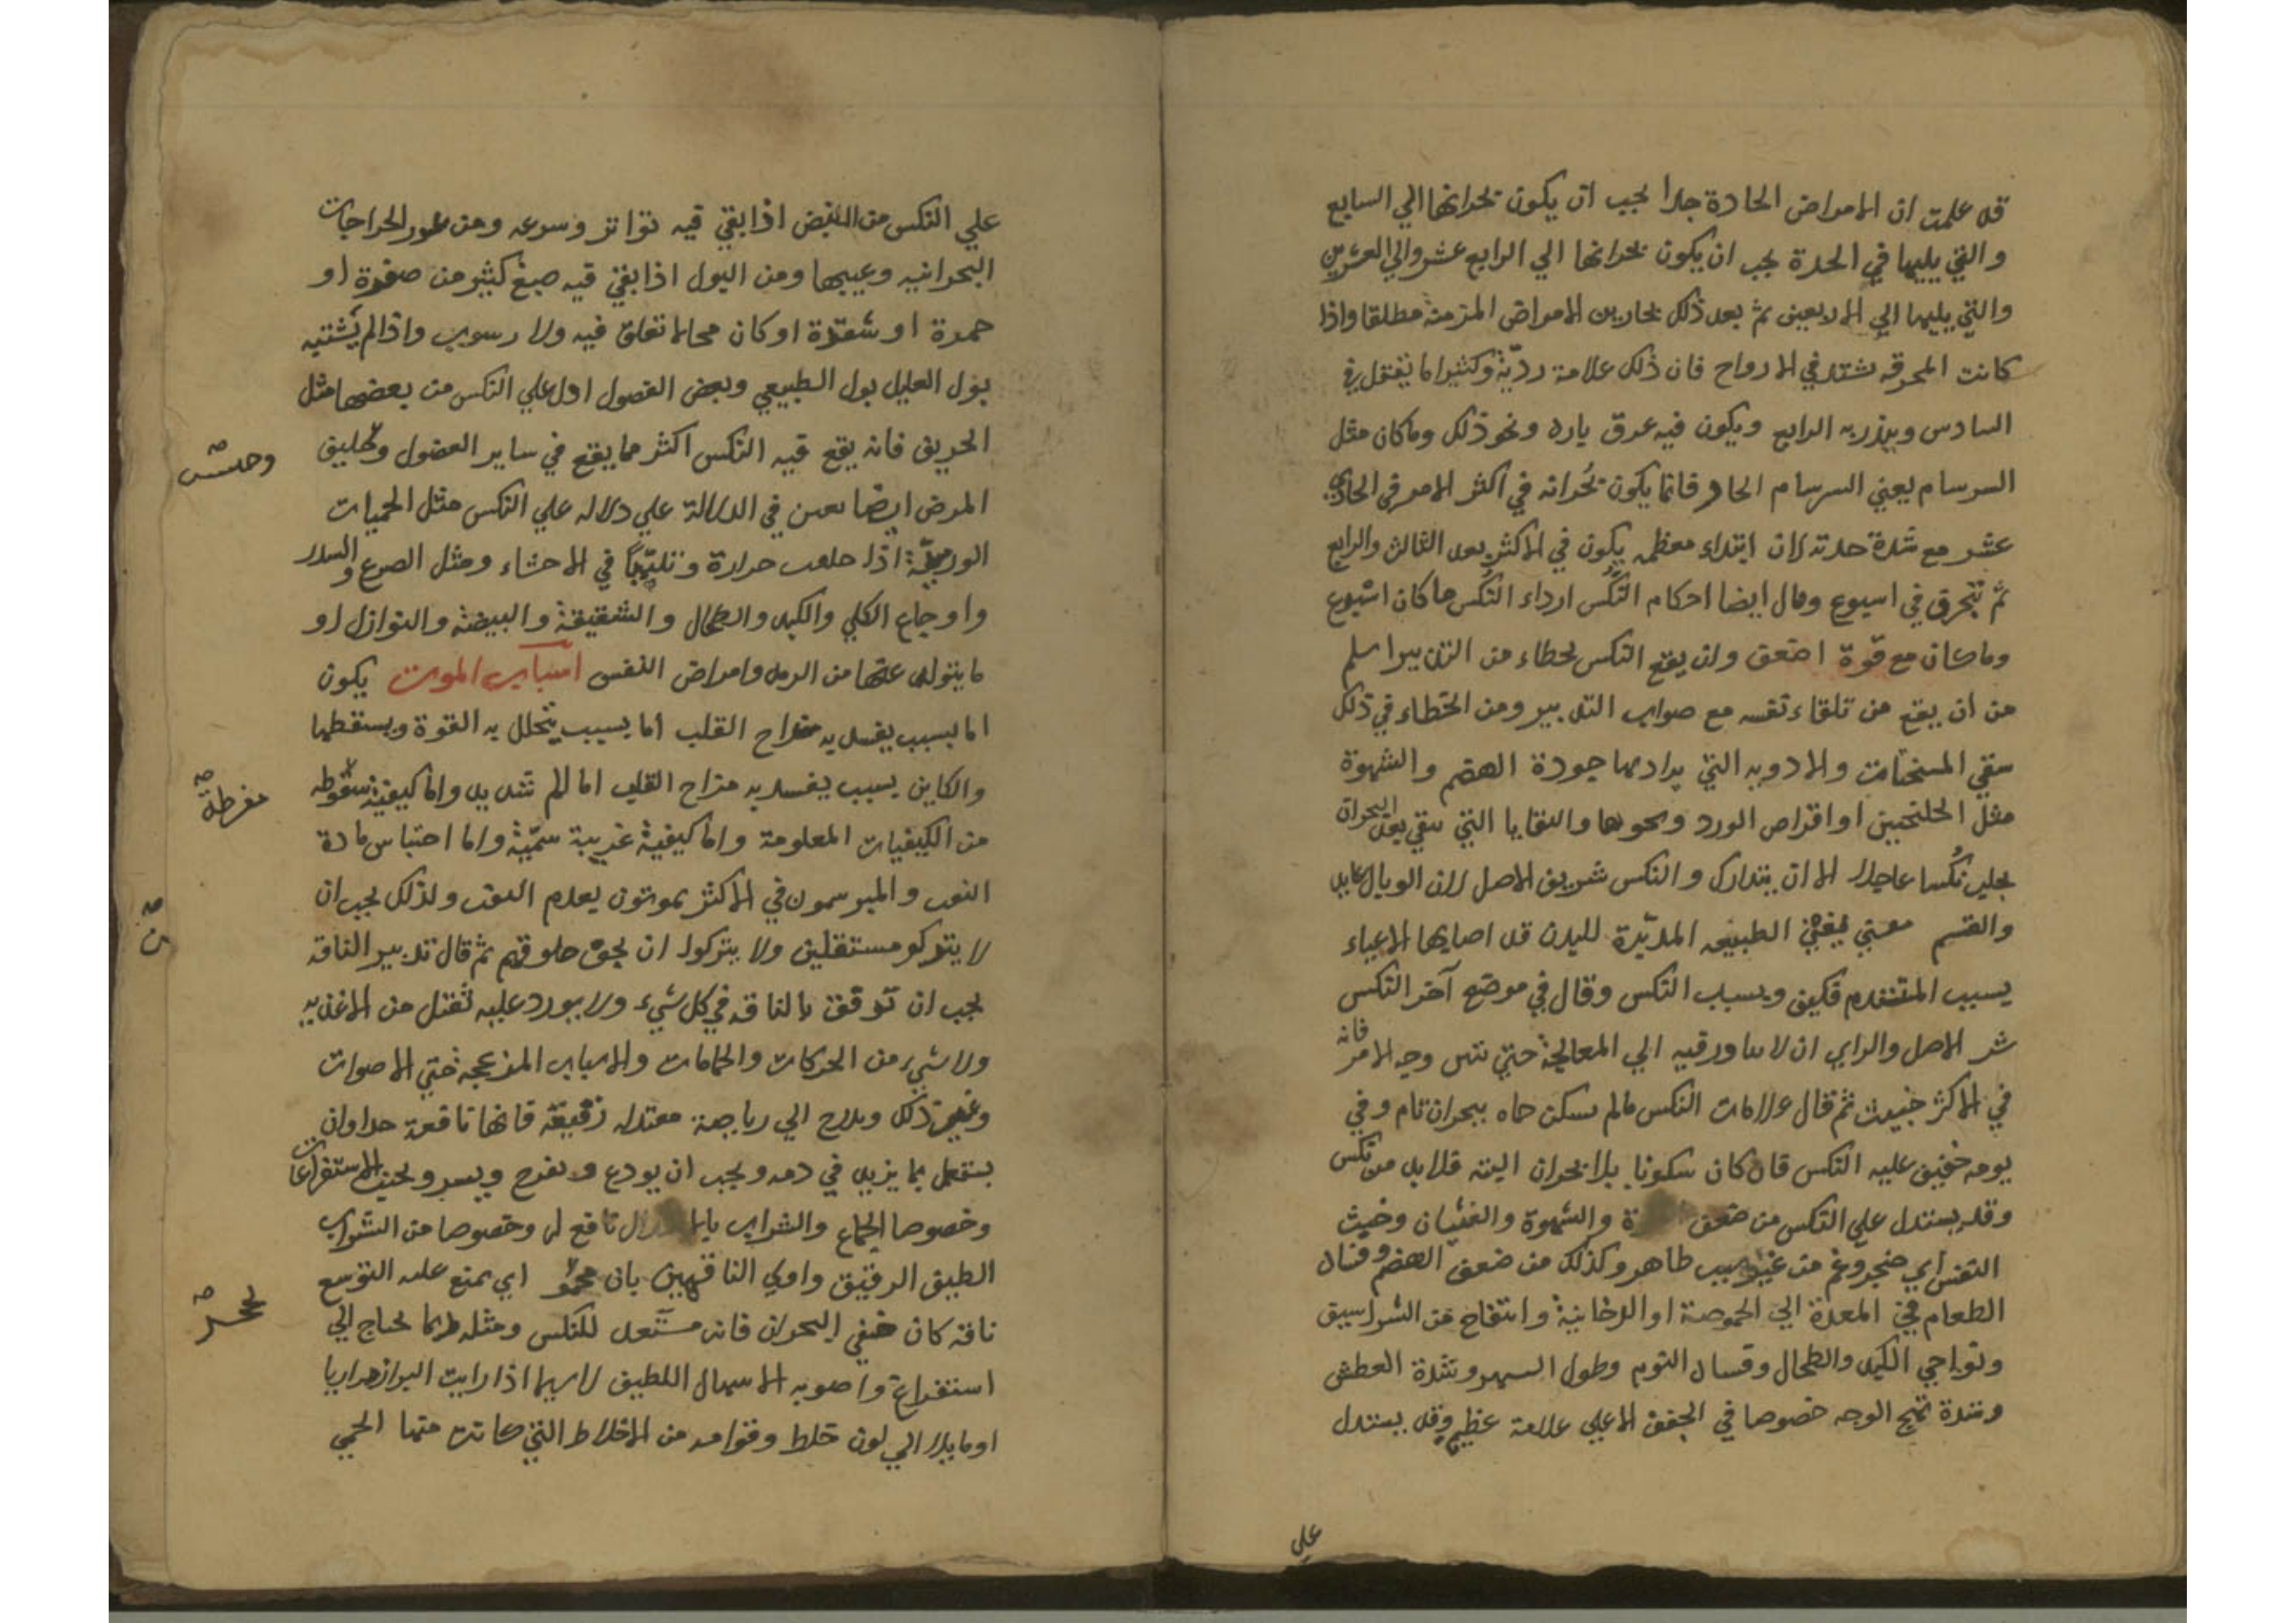 قد علمت ان الامراض الحادة جدا يجب ان يكون بحرانها الي السابع
والتي يليها في الحدة يجب ان يكون بحرانها الي الرابع عشر والي العشرين
والتي يليها الي الاربعين ثم بعد ذلك بحارين الامراض المزمنة مطلقا واذا
كانت المحرقه تشتد في الازواج فان ذلك علامة رديّة وكثيرا ما يقتل في
السادس وينذر به الرابع ويكون فيه عرق بارد ونحو ذلك وما كان مثل
السرسام يعني السرسام الحار فانما يكون بُحرانه في اكثر الامر في الحادي
عشر مع شدة حدته لان ابتداء معظمه يكون في الاكثر بعد الثالث والرابع
ثم في اسبوع وقال ايضا احكام النُكس ارداء النكس ما كان اسرع
وما كان مع قوة اضعف ولان يقع النكس لخطاء من التدبير اسلم
من ان يقع من تلقاء نفسه مع صواب التدبير ومن الخطاء في ذلك
سقي المسخنات والادويه التي يراد بها جودة الهضم والشهوة
مثل الجلنجبين او اقراص الورد ونحوها والبقايا التي تبقي بعد البحران
يجلب نُكسا عاجلا الا ان يتدارك والنكس شر من الاصل لان الوبال عايد
والقسم معني يُعْني الطبيعه المدبّرة للبدن قد اصابها الاعياء
بسبب المتقدم فكيف وبسبب النكس وقال في موضع آخر النكس
شر الاصل والراي ان لا يبادر فيه الي المعالجة حتي يتبين وجه الامر فانه
في الاكثر خبيث ثم قال علامات النكس ما لم يسكن حماه ببحران تام وفي
يومه خيف عليه النكس فان كان سكونا بلا بحران البته فلا بد من نكس
وقد يستدل علي النكس من ضعف والشهوة والغثيان وخبث
النفس اي ضجر وغم من غير سبب ظاهر وكذلك من ضعف الهضم وفساد
الطعام في المعدة الي الحموضة او الدخانية وانتفاخ من الشراسيف
ونواحي الكبد والطحال وفساد النوم وطول السهر وشدة العطش
وشدة تهيج الوجه خصوصا في الجفن الاعلي علامة عظيمة وقد يستدل
علي
علي النكس من النبض اذا بقي فيه تواتر وسرعه ومن غور الخراجات
البحرانيه وغيبها ومن البول اذا بقي فيه صبغ كثير من صفرة او
حمرة او شقرة او كان محالا تعلق فيه ولا رسوب واذا لم يشتبه
بول العليل بول الطبيعي وبعض الفصول ادل علي النكس من بعضها مثل
الخريف فانه يقع فيه النكس اكثر مما يقع في ساير الفصول
وجنس
المرض ايضا في الدلالة علي دلاله علي النكس مثل الحميات
الورميّة اذا خلفت حرارة وتلهّبًا في الاحشاء ومثل الصرع والسدر
واوجاع الكلي والكبد والطحال والشقيقة والبيضة والنوازل او
ما يتولد عنها من الرمد وامراض النفس اسباب الموت يكون
اما بسبب يفسد به مزاج القلب اما بسبب يتحلل به القوة ويسقطها
والكاين بسبب يفسد به مزاج القلب اما الم شديد واما كيفية
مفرطة
من الكيفيات المعلومة واما كيفية غريبة سمّية واما احتباس مادة
النفس والمبرسمون في الاكثر يموتون بعدم النفس ولذلك يجب ان
ن
لا يتركو مستقلين ولا يتركوا ان يجف حلوقهم ثم قال تدبير الناقه
يجب ان تُرفق بالناقه في كل شيء ولا يورد عليه ثقيل من الاغذيه
ولا شيء من الحركات والحمامات والاسباب المزعجه حتي الاصوات
وغير ذلك ويدرج الي رياضة معتدله رقيقة فانها نافعة جدا وان
يشتغل بما يزيد في دمه ويجب ان يودع ويفرح ويسر ويجنب الاستفراغات
وخصوصا الجماع والشراب نافع له وخصوصا من الشراب
الطيف الرقيق واولي الناقهين بان اي يمنع عليه التوسع
ناقه كان خفي البحران فانه مستعد للنكس ومثله ربما يحتاج الي
استفراغ واصوبه الاسهال اللطيف لاسيما اذا رايت البراز مراريا
او مايلا الي لون خلط وقوامه من الاخلاط التي كانت منها الحمي